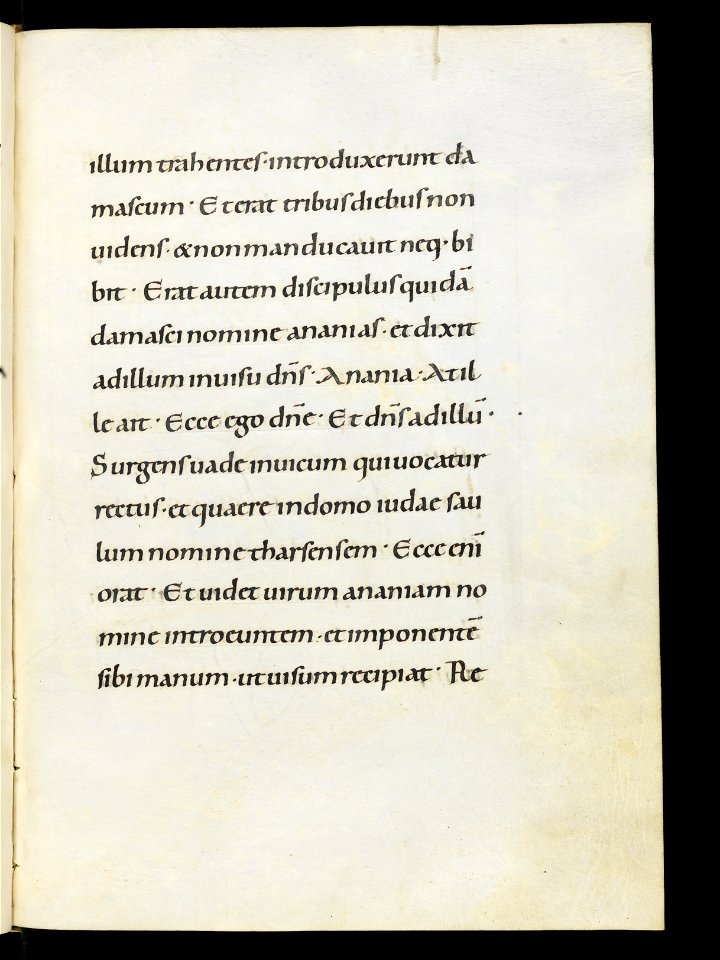 illum trahentes· introduxerunt da
mascum · Et erat tribus diebus non
uidens· & non manducauit neq· bi
bit · Erat autem discipulus quidā
damasci nomine ananias· et dixit
ad illum in uisu dn̄s · Anania · At il
le ait · Ecce ego dn̄e · Et dn̄s ad illū ·
Surgens uade in uicum qui uocatur
rectus· et quaere in domo iudae sau
lum nomine tharsensem · Ecce eni̅
orat · Et uidet uirum ananiam no
mine introeuntem · et imponentē
sibi manum · ut uisum recipiat · Re